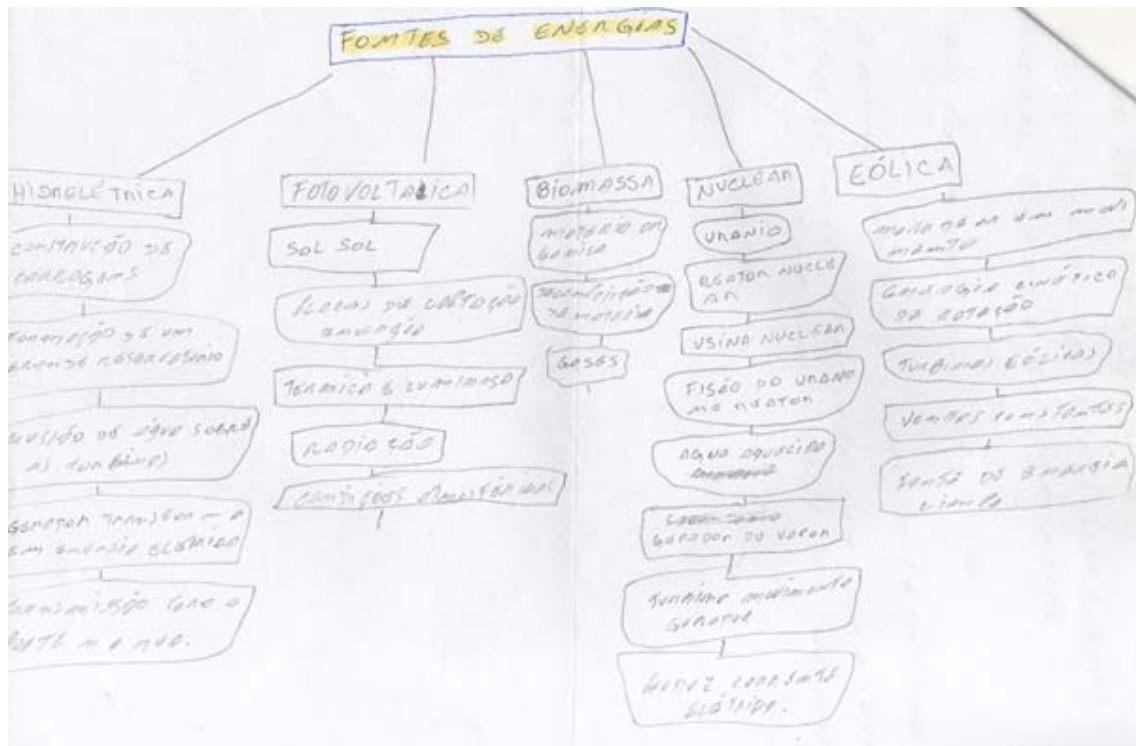 FOMTES DE ENERGIAS
HIDRELÉTRICA
CONSTRUÇÃO DE
BARRAGENS
FORMAÇÃO DE UM
GRANDE RESERVATORIO
DE ÁGUA SOBRE
AS TURBINAS
GERADOR TRANSFORMA
EM ENERGIA ELÉTRICA
FOTOVOLTAICA
SOL SOL
PLACAS DE CAPTAÇÃO
TERMICA E LUMINOSA
RADIAÇÃO
BIOMASSA
MATERIA OR
GANICA
DECOMPOSIÇÃO
DA MATERIA
GASES
NUCLEAR
URANIO
REATOR NUCLE
AR
USINA NUCLEAR
FISÃO DO URANIO
NO REATOR
AGUA AQUECIDA
GERADOR DE VAPOR
TURBINA MOVIMENTO
GERADOR
CORRENTE
ELÉTRICA.
EÓLICA
MASSA DE AR EM MOVI
MENTO
ENERGIA CINÉTICA
DA ROTAÇÃO
TURBINAS EÓLICAS
VEMTOS COMSTAMTES
FONTE DE ENERGIA
LIMPA